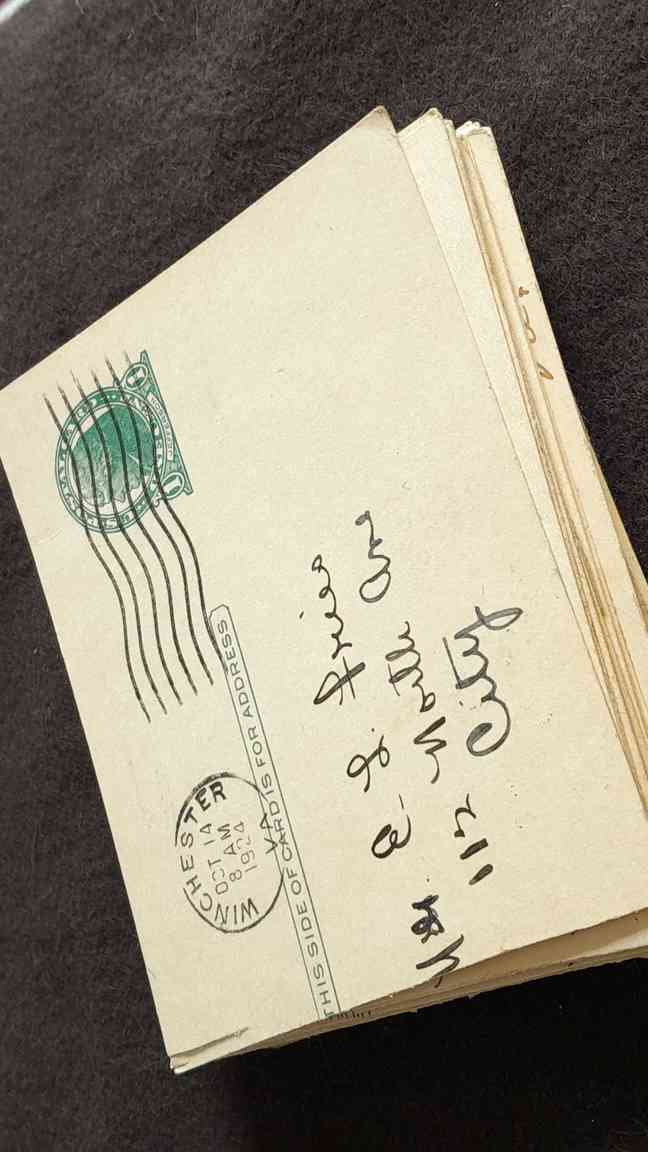 WINCHESTER
OCT 14
8 AM
1924
VA.
THIS SIDE OF CARD IS FOR ADDRESS
1
1
Mr. C. G. Fries
112 Ave
City